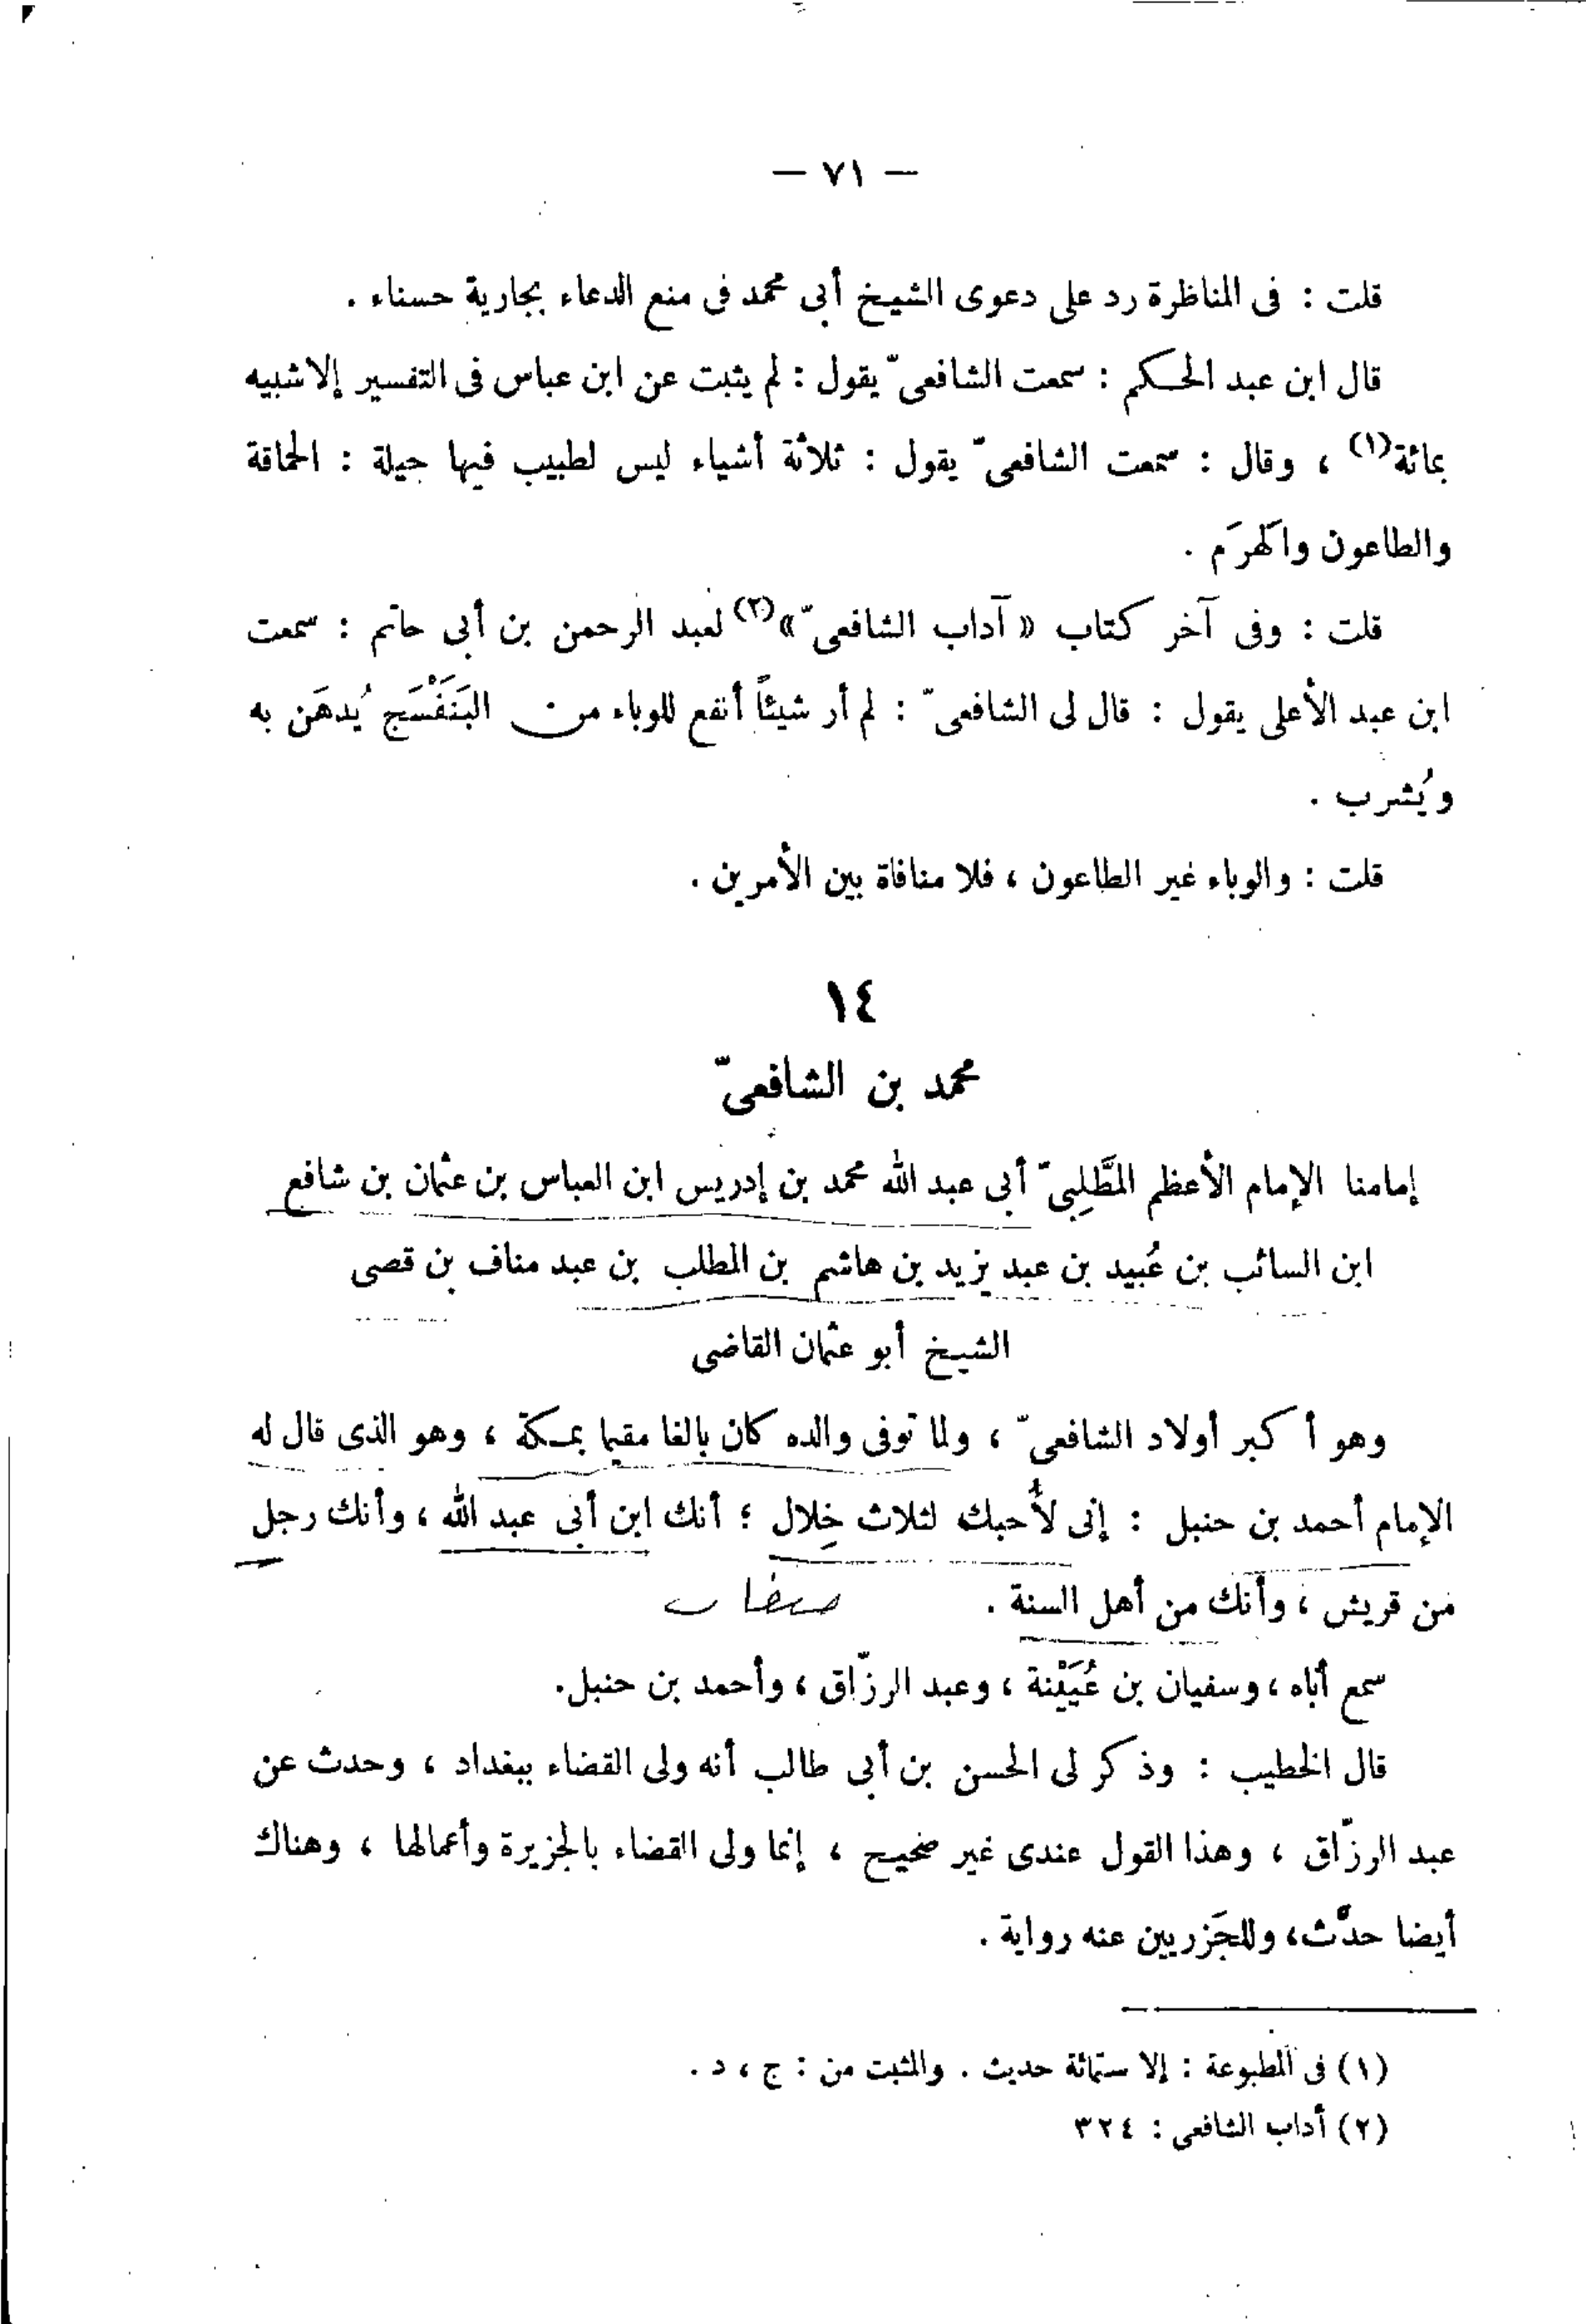 — ٧١ —
قلت : فى المناظرة رد على دعوى الشيخ أبى محمد فى منع الدعاء بجارية حسناء .
قال ابن عبد الحكم : سمعت الشافعىّ يقول : لم يثبت عن ابن عباس فى التفسير إلا شبيه
بمائة(١) ، وقال : سمعت الشافعىّ يقول : ثلاثة أشياء ليس لطبيب فيها حيلة : الحماقة
والطاعون والهَرَم .
قلت : وفى آخر كتاب « آداب الشافعىّ »(٢) لعبد الرحمن بن أبى حاتم : سمعت
ابن عبد الأعلى يقول : قال لى الشافعىّ : لم أر شيئاً أنفع للوباء من البَنَفْسَج يُدهَن به
ويُشرب .
قلت : والوباء غير الطاعون ، فلا منافاة بين الأمرين .
١٤
محمد بن الشافعىّ
إمامنا الإمام الأعظم المطَّلِبىّ أبى عبد الله محمد بن إدريس ابن العباس بن عثمان بن شافع
ابن السائب بن عُبيد بن عبد يزيد بن هاشم بن المطلب بن عبد مناف بن قصى
الشيخ أبو عثمان القاضى
وهو أكبر أولاد الشافعىّ ، ولما توفى والده كان بالغا مقيما بمكة ، وهو الذى قال له
الإمام أحمد بن حنبل : إنى لأُحبك لثلاث خِلال ؛ أنك ابن أبى عبد الله ، وأنك رجل
من قريش ، وأنك من أهل السنة . صفات
سمع أباه ، وسفيان بن عُيَيْنة ، وعبد الرزّاق ، وأحمد بن حنبل.
قال الخطيب : وذكر لى الحسن بن أبى طالب أنه ولى القضاء ببغداد ، وحدث عن
عبد الرزّاق ، وهذا القول عندى غير صحيح ، إنما ولى القضاء بالجزيرة وأعمالها ، وهناك
أيضا حدّث، وللجَزريين عنه رواية .
(١) فى المطبوعة : إلا ستمائة حديث . والمثبت من : ج ، د .
(٢) أداب الشافعى : ٣٢٤